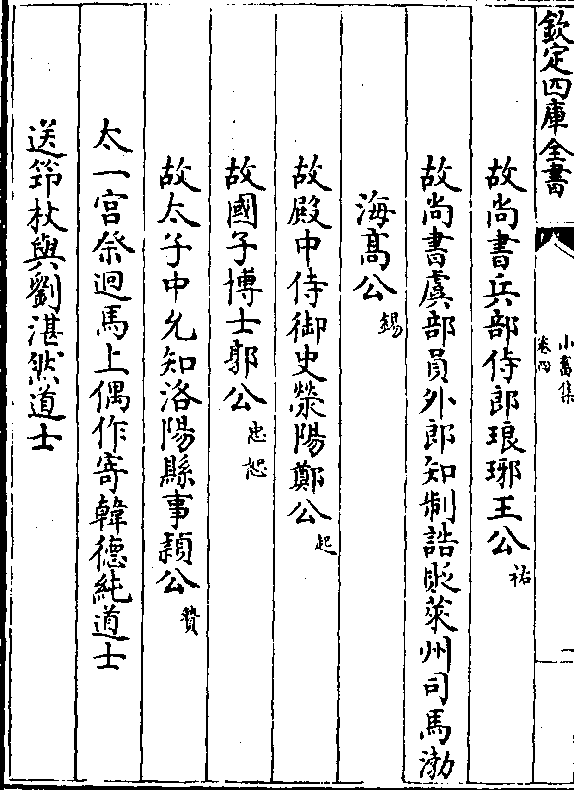 欽定四庫全書
小畜集
卷四
一
故尚書兵部侍郎琅琊王公祐
故尚書虞部員外郎知制誥貶萊州司馬渤
海髙公錫
故殿中侍御史滎陽鄭公起
故國子博士郭公忠恕
故太子中允知洛陽縣事頴公贄
太一宫祭迴馬上偶作寄韓德純道士
送筇杖與劉湛然道士